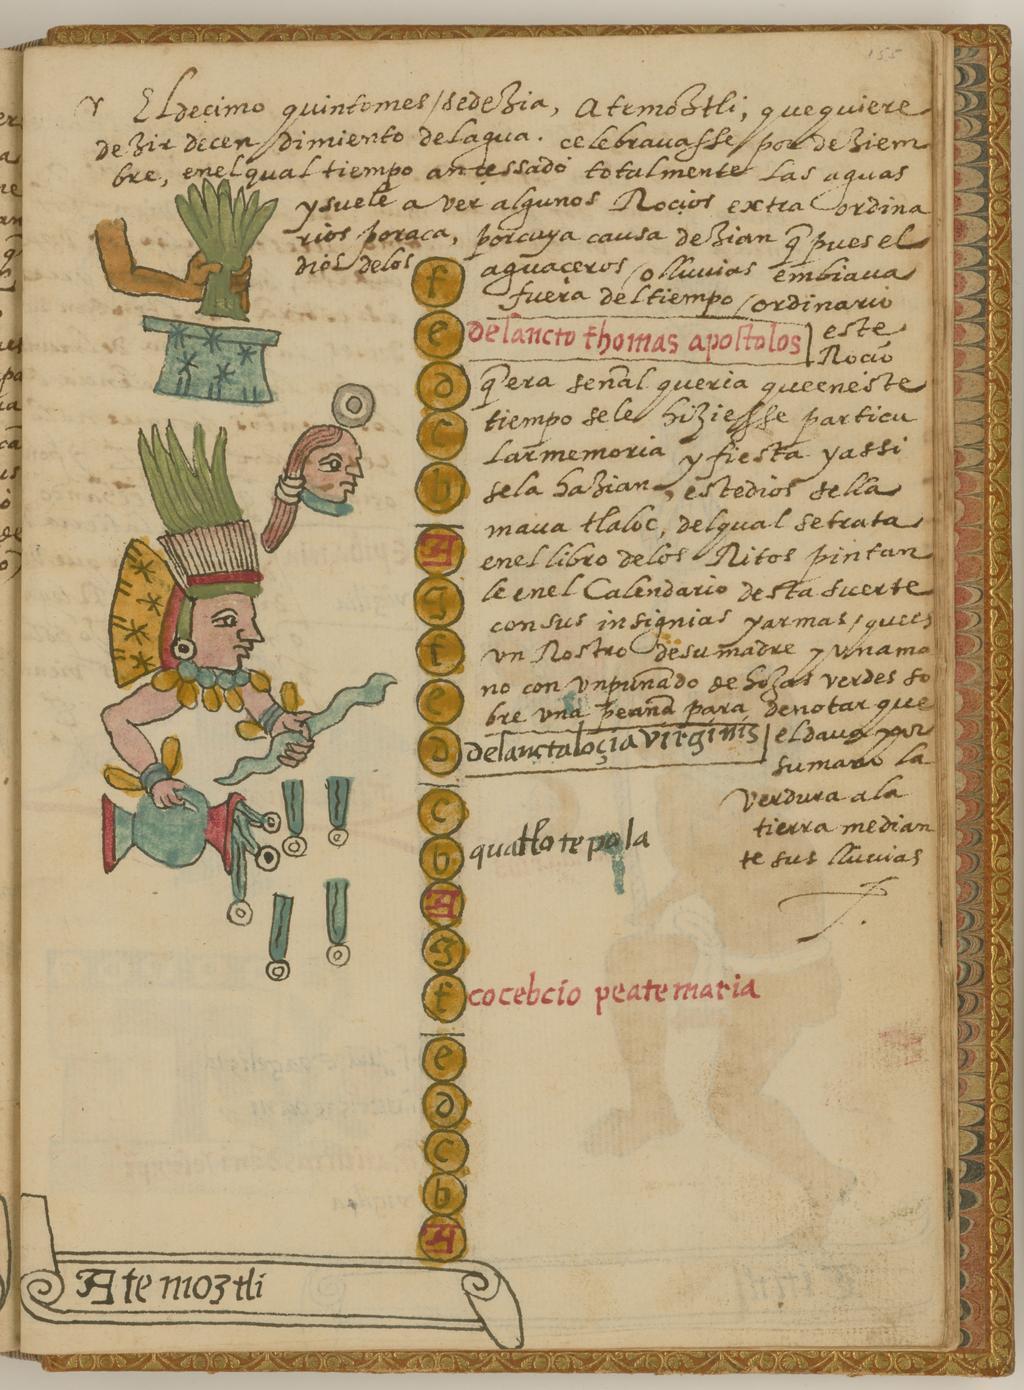 155
El decimo quinto mes / se dezia, Atemoztli, que quiere
dezir decendimiento del agua. celebravasse por deziem
bre, en el qual tiempo an cessado totalmente las aguas
y suele aver algunos Rocios extra ordina
rios poraca, por cuya causa dezian q̃ pues el
dios de los aguaceros / o lluvias embiava
fuera del tiempo / ordinario
este
Rocio
q̃ era señal queria que en este
tiempo se le hiziesse particu
lar memoria y fiesta y assi
se la hazian, este dios se lla
mava tlaloc, del qual se trata
en el libro de los Ritos pintan
le en el Calendario desta suerte
con sus insignias y armas / que es
un Rostro de su madre y una ma
no con un puñado de hojas verdes so
bre una peana para denotar que
el dava por
su mano la
verdura a la
tierra median
te sus lluvias
f
e de sancto thomas apostolos
d
c
b
A
g
f
e
d de sancta locia virginis
c
b quatlo tepola
A
g
f cocebcio peate maria
e
d
c
b
A
Atemoztli